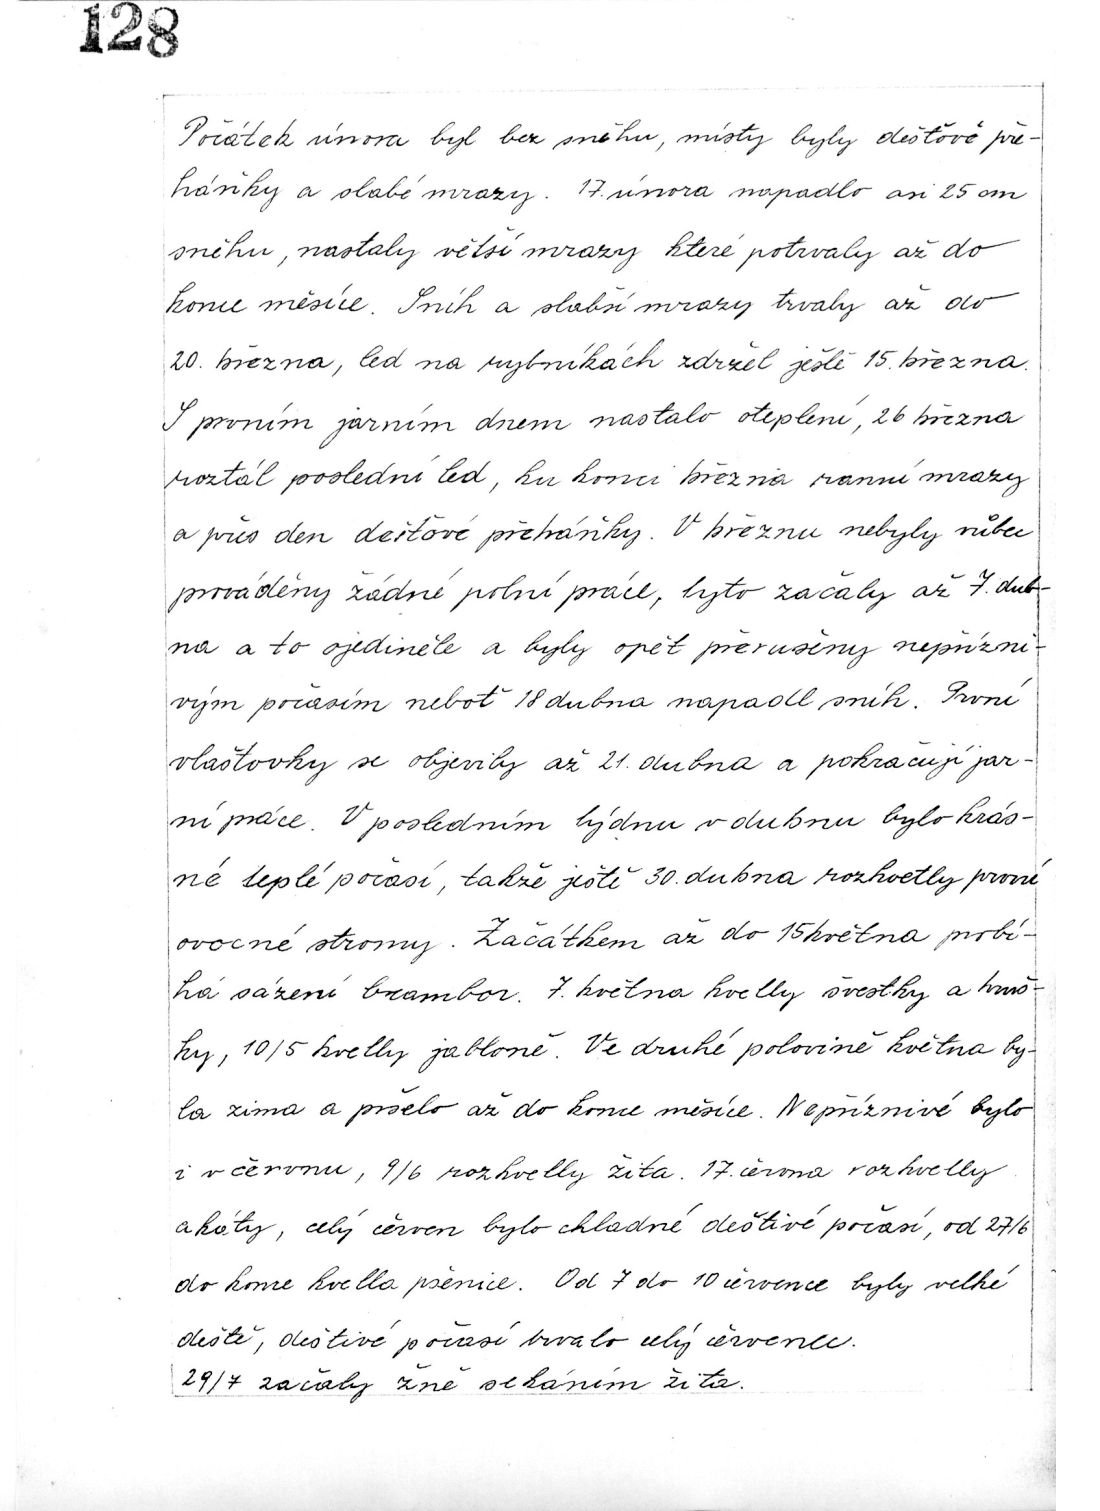 128
Počátek února byl bez sněhu, místy byly dešťové pře-
háňky a slabé mrazy. 17. února napadlo asi 25 cm
sněhu, nastaly větší mrazy které potrvaly až do
konce měsíce. Sníh a slabší mrazy trvaly až do
20. března, led na rybníkách zdržel ještě 15. března.
S prvním jarním dnem nastalo oteplení, 26 března
roztál poslední led, ku konci března ranní mrazy
a přes den dešťové přeháňky. V březnu nebyly vůbec
prováděny žádné polní práce, tyto začaly až 7. dub-
na a to ojediněle a byly opět přerušeny nepřízni-
vým počasím neboť 18 dubna napadl sníh. První
vlaštovky se objevily až 21. dubna a pokračují jar-
ní práce. V posledním týdnu v dubnu bylo krás-
né teplé počasí, takže ještě 30. dubna rozkvetly první
ovocné stromy. Začátkem až do 15 května probí-
há sázení brambor. 7. května kvetly švestky a hruš-
ky, 10/5 kvetly jabloně. Ve druhé polovině května by-
la zima a pršelo až do konce měsíce. Nepříznivé bylo
i v červnu, 9/6 rozkvetly žita. 17. června rozkvetly
akáty, celý červen bylo chladné deštivé počasí, od 27/6
do konce kvetla pšenice. Od 7 do 10 července byly velké
deště, deštivé počasí trvalo celý červenec.
29/7 začaly žně sekáním žita.